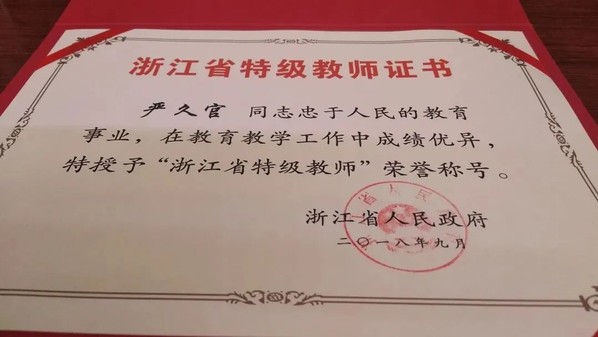 浙江省特级教师证书
严久官 同志忠于人民的教育
事业，在教育教学工作中成绩优异，
特授予“浙江省特级教师”荣誉称号。
浙江省人民政府
二〇一八年九月